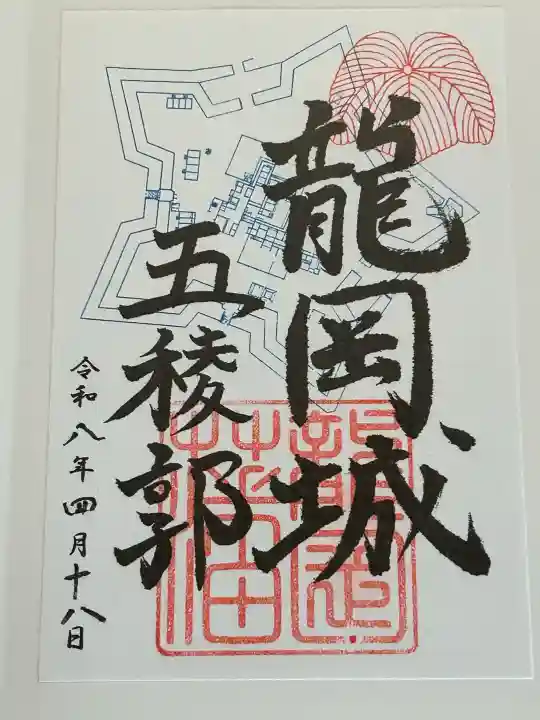 龍岡城
五稜郭
令和八年四月十八日